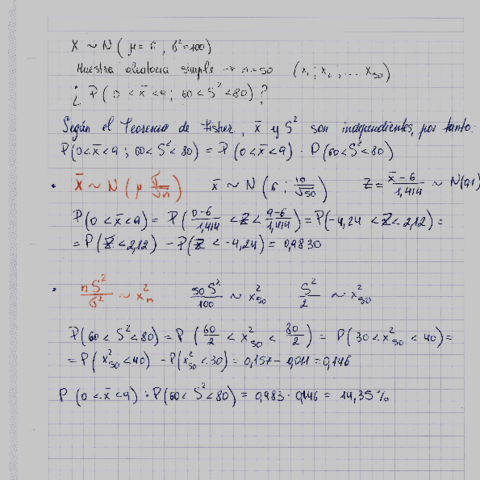 X ~ N ( μ = 6 , σ² = 100)
Muestra aleatoria simple → n = 50 (x₁ ; x₂ , ... x₅₀)
¿ P ( 0 < x̄ < 9 ; 60 < S² < 80) ?
Según el Teorema de Fisher, x̄ y S² son independientes, por tanto:
P(0 < x̄ < 9 ; 60 < S² < 80) = P (0 < x̄ < 9) · P(60 < S² < 80)
• X̄ ~ N ( μ σ/√n ) x̄ ~ N ( 6 ; 10/√50 ) Z = (x̄ - 6)/1,414 ~ N(0,1)
P(0 < x̄ < 9) = P( (0-6)/1,414 < Z < (9-6)/1,414 ) = P(-4,24 < Z < 2,12) =
= P(Z < 2,12) - P(Z < -4,24) = 0,9830
• nS²/σ² ~ x²ₙ 50S²/100 ~ x²₅₀ S²/2 ~ x²₅₀
P(60 < S² < 80) = P ( 60/2 < x²₅₀ < 80/2 ) = P(30 < x²₅₀ < 40) =
= P( x²₅₀ < 40) - P(x²₅₀ < 30) = 0,157 - 0,011 = 0,146
P (0 < x̄ < 9) · P(60 < S² < 80) = 0,983 · 0,146 = 14,35%